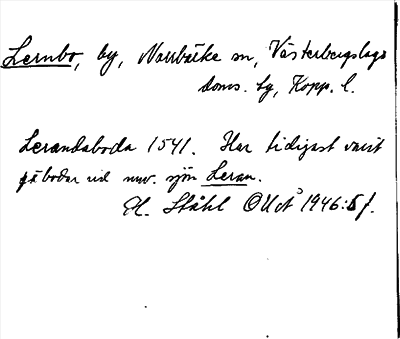 Lernbo, by, Norrbärke sn, Västerbergslags
doms. by, Kopp. l.
Lerandaboda 1541. Har tidigast varit
fäbodar vid nuv. sjön Leran.
H. Ståhl OUÅ 1946:5 f.